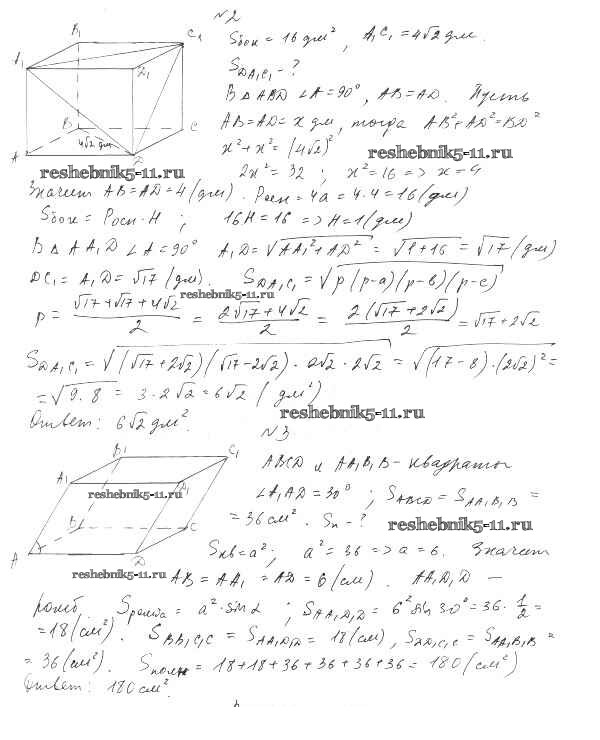 N2
B₁
C₁
A₁
D₁
B
C
4√2 дм
A
D
Sбок = 16 дм², A₁C₁ = 4√2 дм.
S_DA₁C₁ - ?
В △ ABD ∠A = 90°, AB = AD. Пусть
AB = AD = x дм, тогда AB² + AD² = BD²
x² + x² = (4√2)²
2x² = 32 ; x² = 16 => x = 4
reshebnik5-11.ru
reshebnik5-11.ru
Значит AB = AD = 4 (дм). Pосн = 4a = 4·4 = 16 (дм)
Sбок = Pосн · H ; 16H = 16 => H = 1 (дм)
В △ AA₁D ∠A = 90° A₁D = √AA₁² + AD² = √1+16 = √17 (дм)
DC₁ = A₁D = √17 (дм). S_DA₁C₁ = √p(p-a)(p-b)(p-c)
reshebnik5-11.ru
p = (√17 + √17 + 4√2)/2 = (2√17 + 4√2)/2 = 2(√17 + 2√2)/2 = √17 + 2√2
S_DA₁C₁ = √(√17 + 2√2)(√17 - 2√2) · 2√2 · 2√2 = √(17 - 8)·(2√2)² =
= √9·8 = 3·2√2 = 6√2 (дм²)
Ответ: 6√2 дм².
reshebnik5-11.ru
N3
B₁
C₁
A₁
D₁
B
C
A
D
reshebnik5-11.ru
ABCD и AA₁B₁B - квадраты
∠A₁AD = 30° ; S_ABCD = S_AA₁B₁B =
= 36 см². Sп - ?
reshebnik5-11.ru
Sкв = a² ; a² = 36 => a = 6. Значит
reshebnik5-11.ru
AB = AA₁ = AD = 6 (см). AA₁D₁D -
ромб. Sромба = a² · sin α ; S_AA₁D₁D = 6² sin 30° = 36 · 1/2 =
= 18 (см²). S_BB₁C₁C = S_AA₁D₁D = 18 (см²), S_DD₁C₁C = S_AA₁B₁B =
= 36 (см²). Sполн = 18 + 18 + 36 + 36 + 36 + 36 = 180 (см²)
Ответ: 180 см².